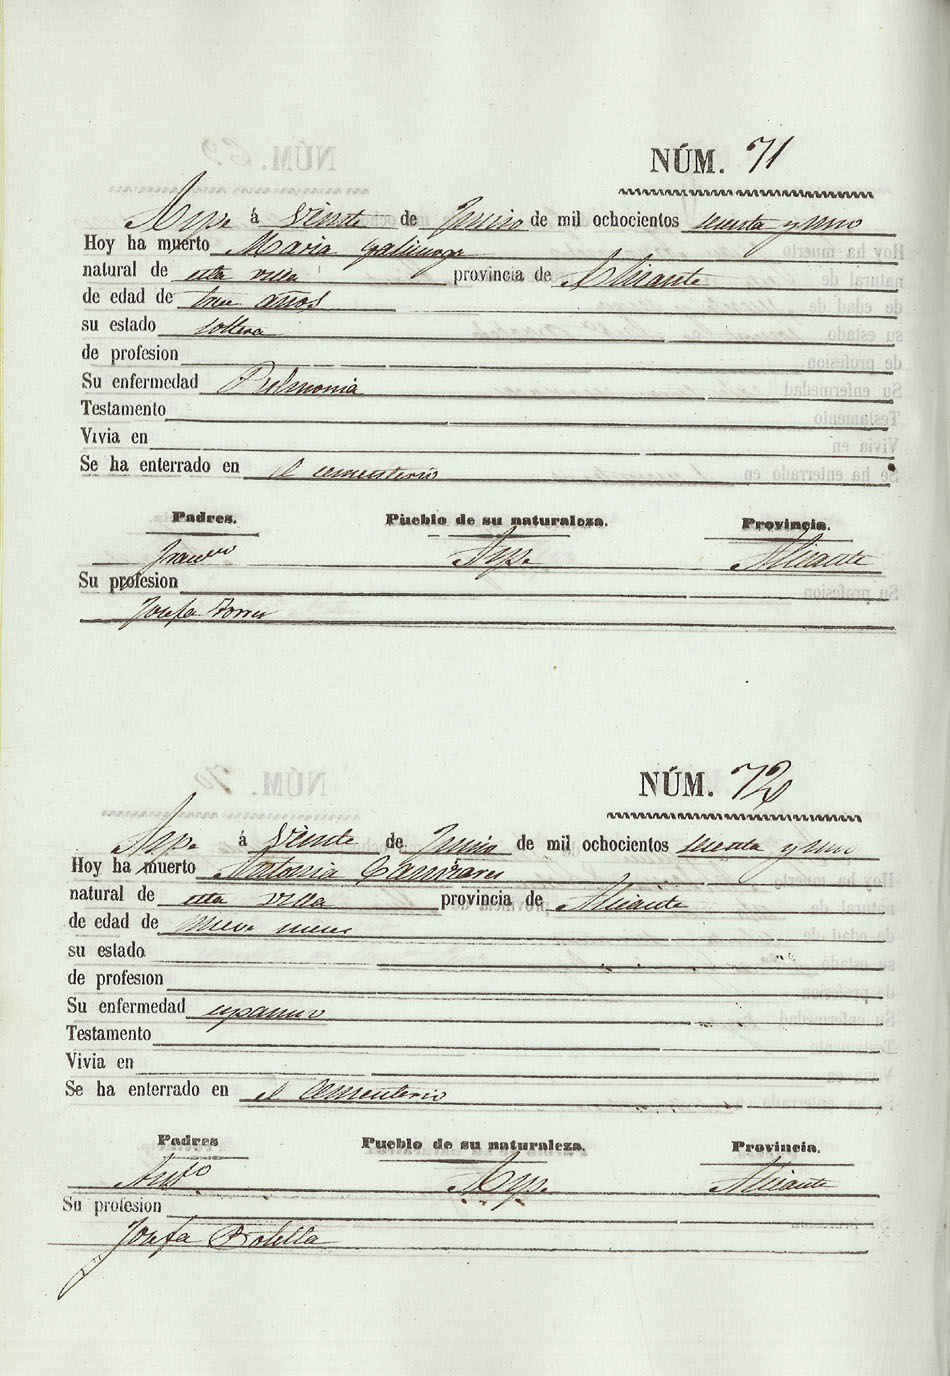 NÚM. 71
Aspe á Veinte de Junio de mil ochocientos sesenta y uno
Hoy ha muerto Maria
natural de esta villa provincia de Alicante
de edad de tres años
su estado soltera
de profesion
Su enfermedad Pulmonia
Testamento
Vivia en
Se ha enterrado en el cementerio
Padres. Pueblo de su naturaleza. Provincia.
Franco Aspe Alicante
Su profesion
Josefa Torres
NÚM. 72
Aspe á Veinte de Junio de mil ochocientos sesenta y uno
Hoy ha muerto Antonia Cañizares
natural de esta villa provincia de Alicante
de edad de nueve meses
su estado
de profesion
Su enfermedad espasmo
Testamento
Vivia en
Se ha enterrado en el Cementerio
Padres Pueblo de su naturaleza. Provincia.
Anto Aspe Alicante
Su profesion
Josefa Botella